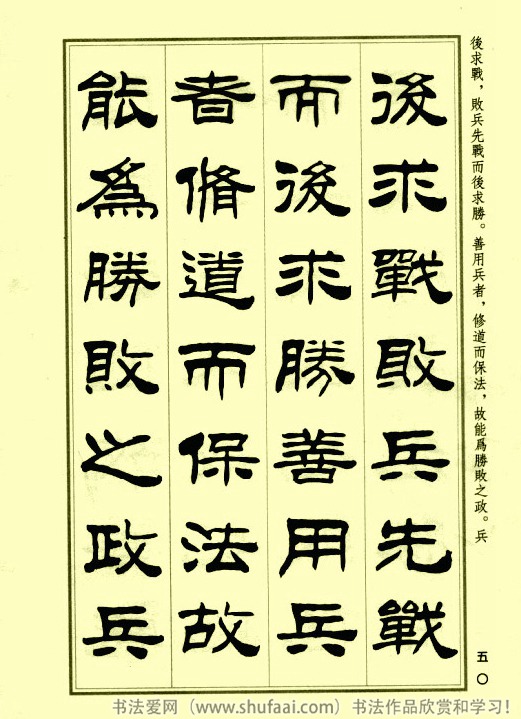 後求戰，敗兵先戰而後求勝。善用兵者，修道而保法，故能爲勝敗之政。兵
後求戰敗兵先戰
而後求勝善用兵
者脩道而保法故
能爲勝敗之政兵
五〇
书法爱网（www.shufaai.com）书法作品欣赏和学习！